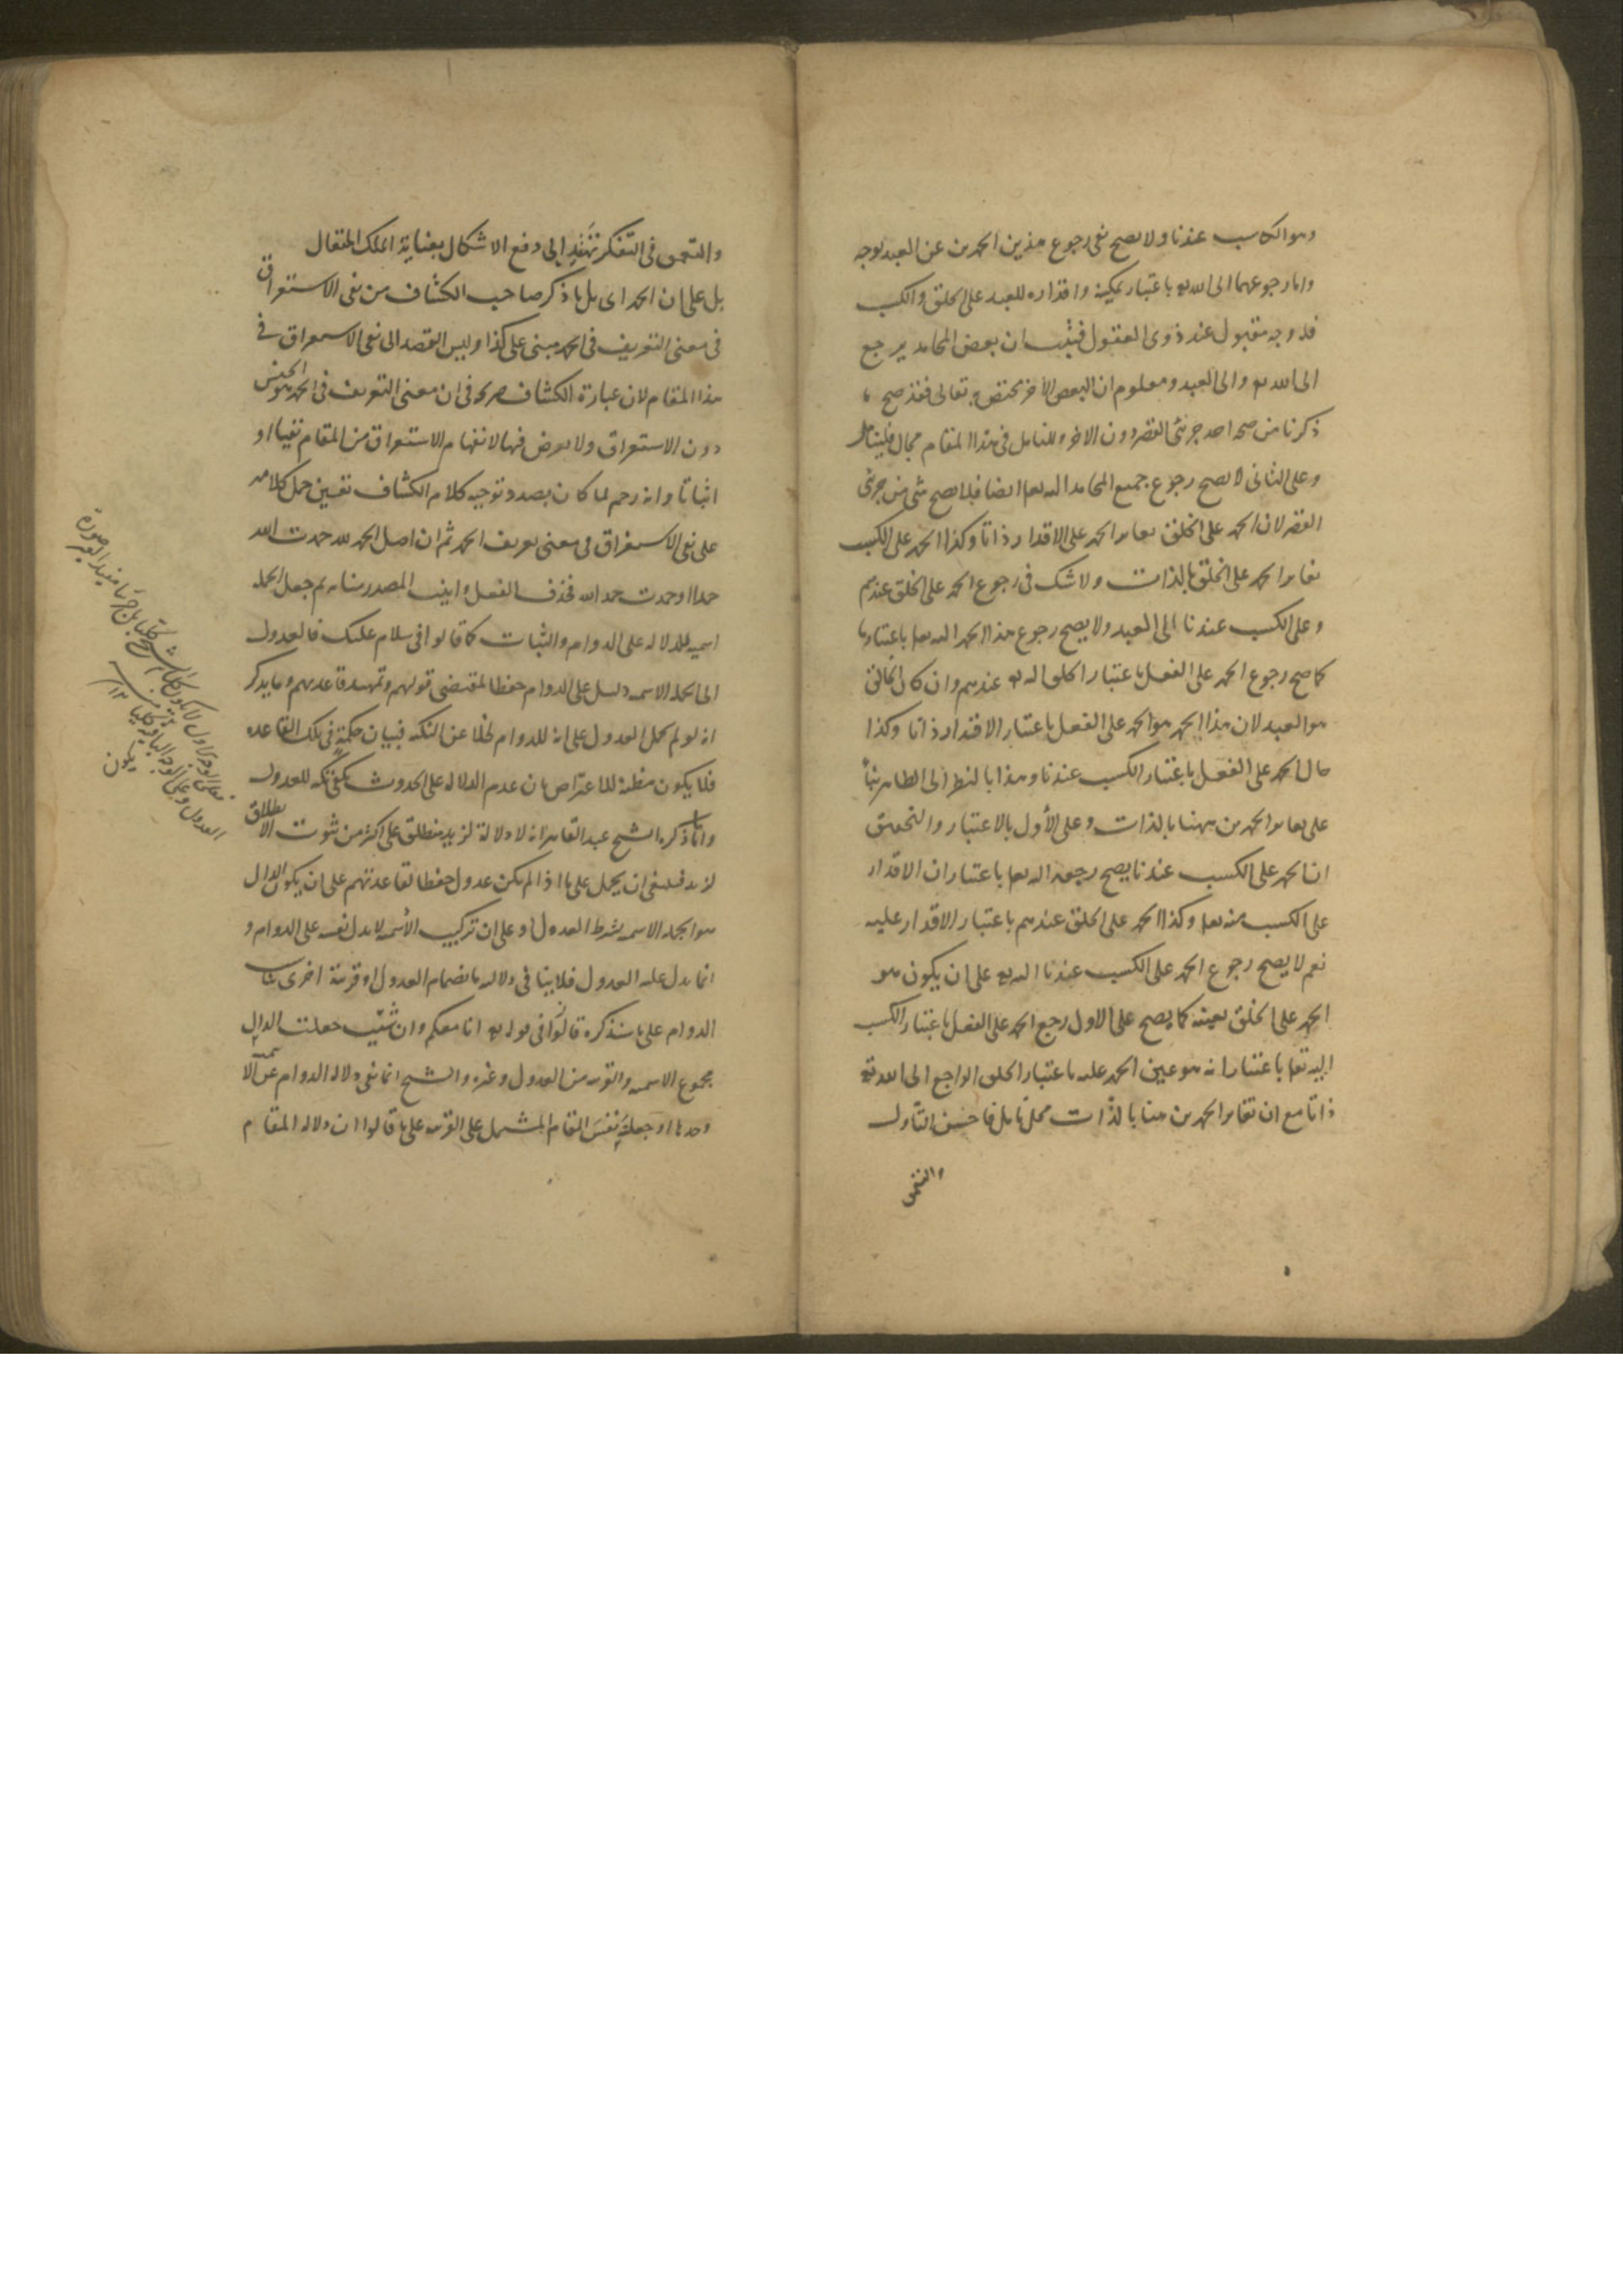 وهو الكاسب عندنا ولا يصح نفى رجوع هذين الحمدين عن العبد بوجه
واما رجوعهما الى الله تع باعتبار تمكينه واقداره للعبد على الخلق والكسب
فله وجه مقبول عند ذوى العقول فيثبت ان بعض المحامد يرجع
الى الله تع والى العبد ومعلوم ان البعض الآخر مختص به تعالى فقد صح ما
ذكرنا من صحة احد جزئى القصر دون الآخر وللتامل فى هذا المقام مجال فليتامل
وعلى الثانى لا يصح رجوع جميع المحامد اليه تعا ايضا فلا يصح شئ من جزئى
القصر لان الحمد على الخلق يغاير الحمد على الاقدار ذاتا وكذا الحمد على الكسب
يغاير الحمد على الخلق بالذات ولا شك فى رجوع الحمد على الخلق عندهم
وعلى الكسب عندنا الى العبد ولا يصح رجوع هذا الحمد اليه تعا باعتبار ما
كما صح رجوع الحمد على الفعل باعتبار الخلق اليه تع عندهم وان كان الخالق
هو العبد لان هذا الحمد هو الحمد على الفعل باعتبار الاقتدار ذاتا وكذا
حال الحمد على الفعل باعتبار الكسب عندنا وهذا بالنظر الى الظاهر بناءً
على تغاير الحمدين ههنا بالذات وعلى الأول بالاعتبار والتحقيق
ان الحمد على الكسب عندنا يصح رجعه اليه تعا باعتبار ان الاقدار
على الكسب منه تعا وكذا الحمد على الخلق عندهم باعتبار الاقدار عليه
نعم لا يصح رجوع الحمد على الكسب عندنا اليه تع على ان يكون هو
الحمد على الخلق بعينه كما يصح على الاول رجع الحمد على الفعل باعتبار الكسب
اليه تعا باعتبار انه هو عين الحمد عليه باعتبار الخلق الراجع الى الله تع
ذاتا مع ان تغاير الحمدين هنا بالذات محل تامل فاحسن التأول
والتعمق
والتعمق فى التفكر تهتد الى دفع الاشكال بعناية الملك المتعال
بل على ان الحمد اى بل ما ذكر صاحب الكشاف من نفى الاستغراق
فى معنى التعريف فى الحمد مبنى على كذا وليس القصد الى نفى الاستغراق فى
هذا المقام لان عبارة الكشاف صريحة فى ان معنى التعريف فى الحمد هو الجنس
دون الاستغراق ولا تعرض فيها لانفهام الاستغراق من المقام نفيا او
اثباتا وانه رحم لما كان بصدد توجيه كلام الكشاف تعين حمل كلامه
على نفى الاستغراق فى معنى تعريف الحمد ثم ان اصل الحمد لله حمدت الله
حمدا او حمدت حمد الله فحذف الفعل وانيب المصدر منابه ثم جعل الجملة
اسمية للدلالة على الدوام والثبات كما قالوا فى سلام عليك فالعدول
الى الجملة الاسمية دليل على الدوام حفظا لمقتضى قولهم وتمهيد قاعدتهم وما يذكر
انه لو لم يحمل العدول على انه للدوام لخلا عن النكته فبيان حكمة فى تلك القاعدة
فلا يكون مظنة للاعتراض بان عدم الدلالة على الحدوث يكفى نكته للعدول
واما ما ذكره الشيخ عبد القاهر انه لا دلالة لزيد منطلق على اكثر من ثبوت الانطلاق
لزيد فينبغى ان يحمل على ما اذا لم يكن عدول حفظا لقاعدتهم على ان يكون الدال
هو الجملة الاسمية بشرط العدول او على ان تركيب الأسمية لا يدل نفسه على الدوام و
انما يدل عليه العدول فلا ينافى دلالته بانضمام العدول او قرينة اخرى
الدوام على ما سنذكره قالوا فى قوله تع انا معكم وان شئت جعلت الدال
مجموع الاسمية والقرينة من العدول وغيره والشيخ انما نفى دلالة الدوام عن الاسمية
وحدها او جعلت نفس المقام المشتمل على القرينة على ما قالوا ان دلالة المقام
فعلى الوجه الاول لا يكون كلام الشيخ
العدول وعلى الوجه الباقى
يكون